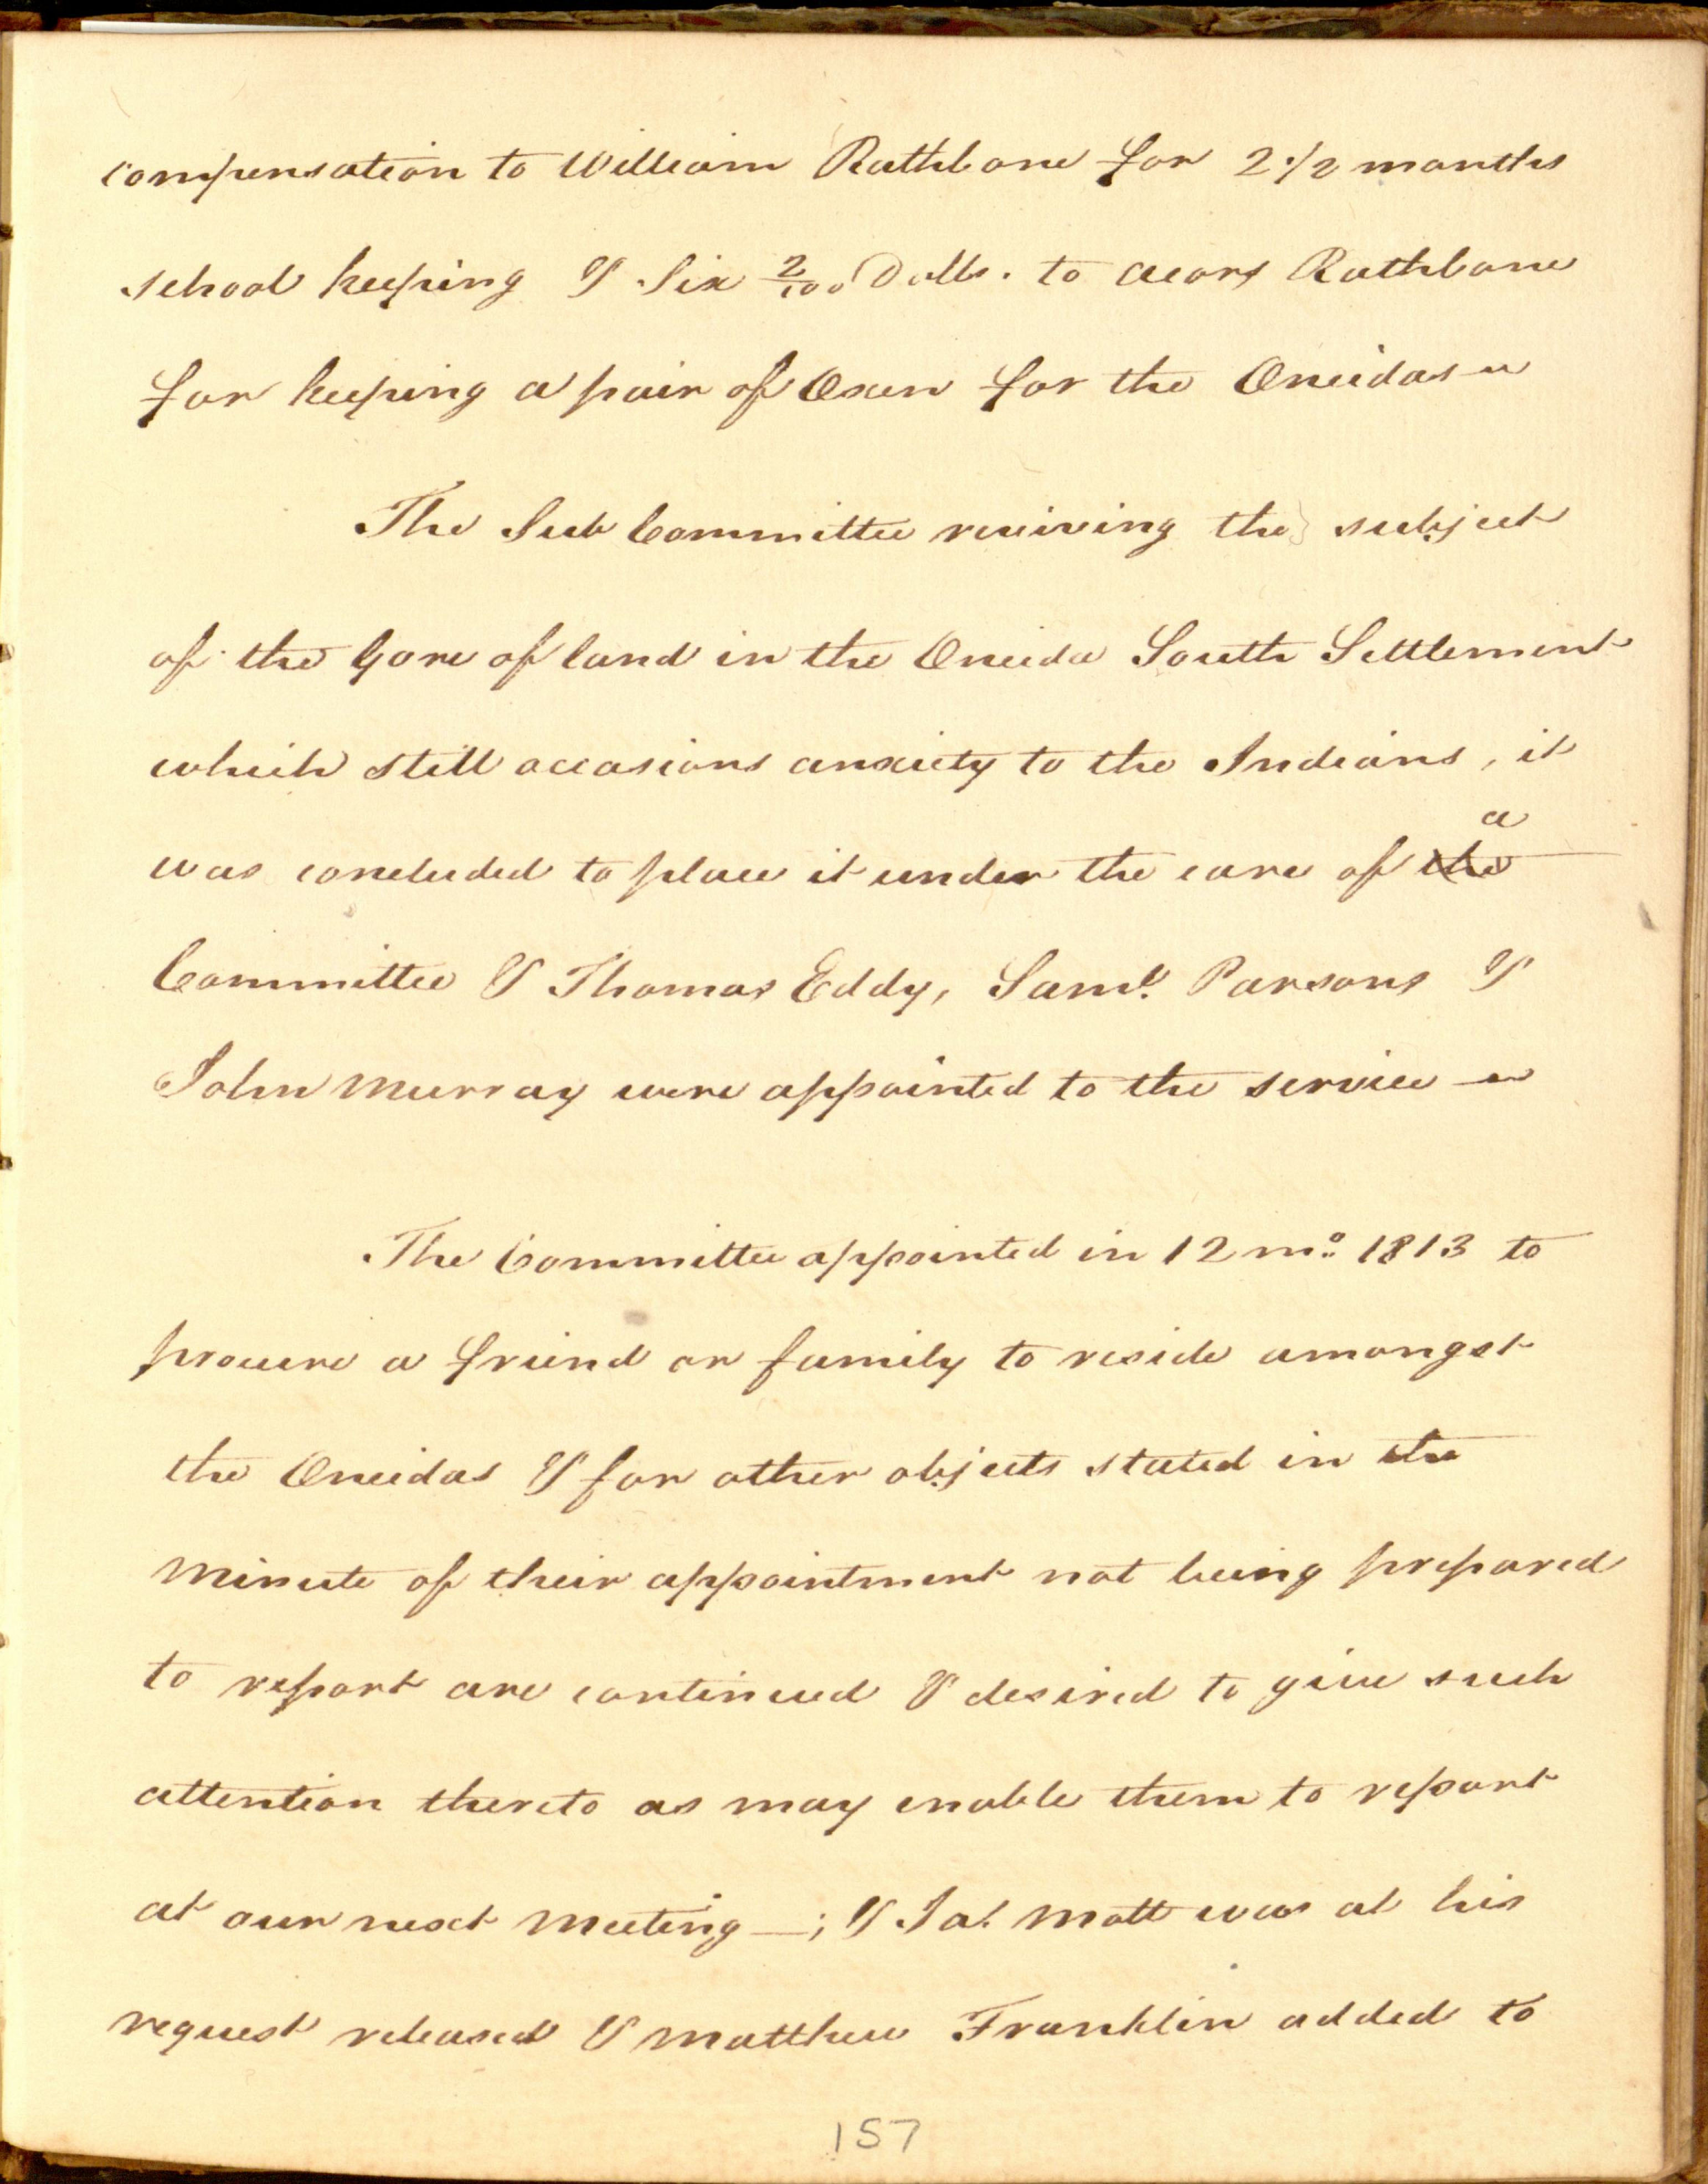 compensation to William Rathbone for 2 1/2 months
school keeping & Six 2/100 Dolls. to Acors Rathbone
for keeping a pair of Oxen for the Oneidas
The Sub Committee reviving the subject
of the Gore of land in the Oneida South Settlement
which still occasions anxiety to the Indians, it
a
was concluded to place it under the care of the
Committee & Thomas Eddy, Saml. Parsons &
John Murray were appointed to the service
The Committee appointed in 12 mo. 1813 to
procure a friend or family to reside amongst
the Oneidas & for other objects stated in the
minute of their appointment not being prepared
to report are continued & desired to give such
attention thereto as may enable them to report
at our next meeting —; & Jas. Mott was at his
request released & Matthew Franklin added to
157